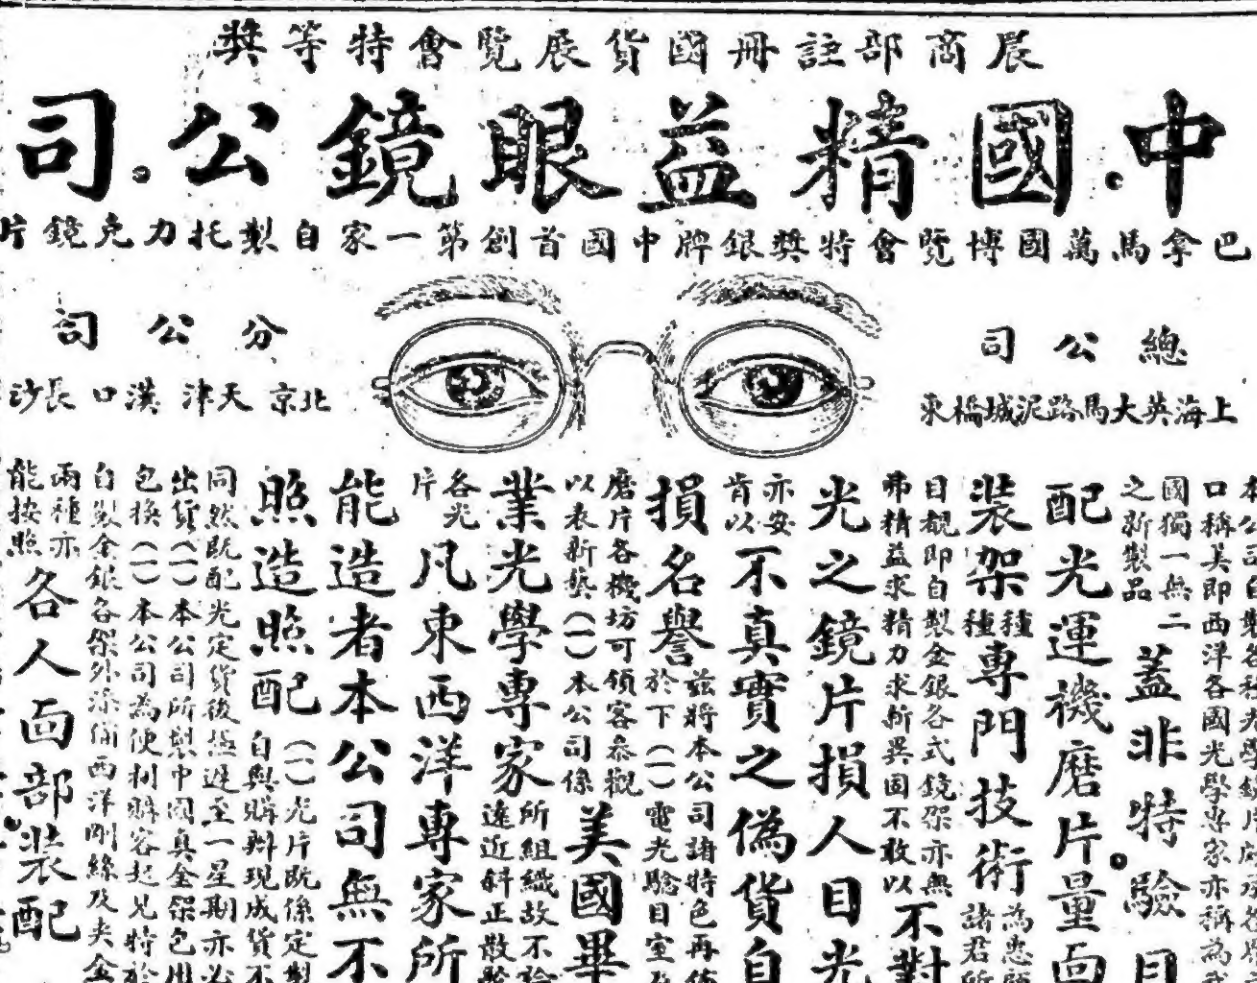 農商部註冊國貨展覽會特等獎
中國精益眼鏡公司
巴拿馬萬國博覽會特獎銀牌中國首創第一家自製托力克鏡片
總公司
上海英大馬路泥城橋東
分公司
北京 天津 漢口 長沙
本公司自製各種光學鏡片
口稱美即西洋各國光學專家亦稱為我
國獨一無二
之新製品
蓋非特驗目
配光運機磨片量面
裝架種種專門技術
為惠顧
諸君所
目覩即自製金銀各式鏡架亦無
弗精益求精力求新異固不敢以
不對
光之鏡片損人目光
亦安
肯以
不真實之偽貨自
損名譽
茲將本公司諸特色再佈
於下(一)電光驗目室及
磨片各機坊可領客參觀
以表新藝(一)本公司係
美國畢
業光學專家
所組織故不論
遠近斜正散驗
各光
片
凡東西洋專家所
能造者本公司無不
照造照配
(一)光片既係定製
自與購辦現成貨不
同然既配光定貨後極遲至一星期亦必
出貨(一)本公司所製中國真金架包出
包換(一)本公司為便利購客起見特於
自製金銀各架外添備西洋剛絲及夾金
兩種亦
能按照
各人面部裝配